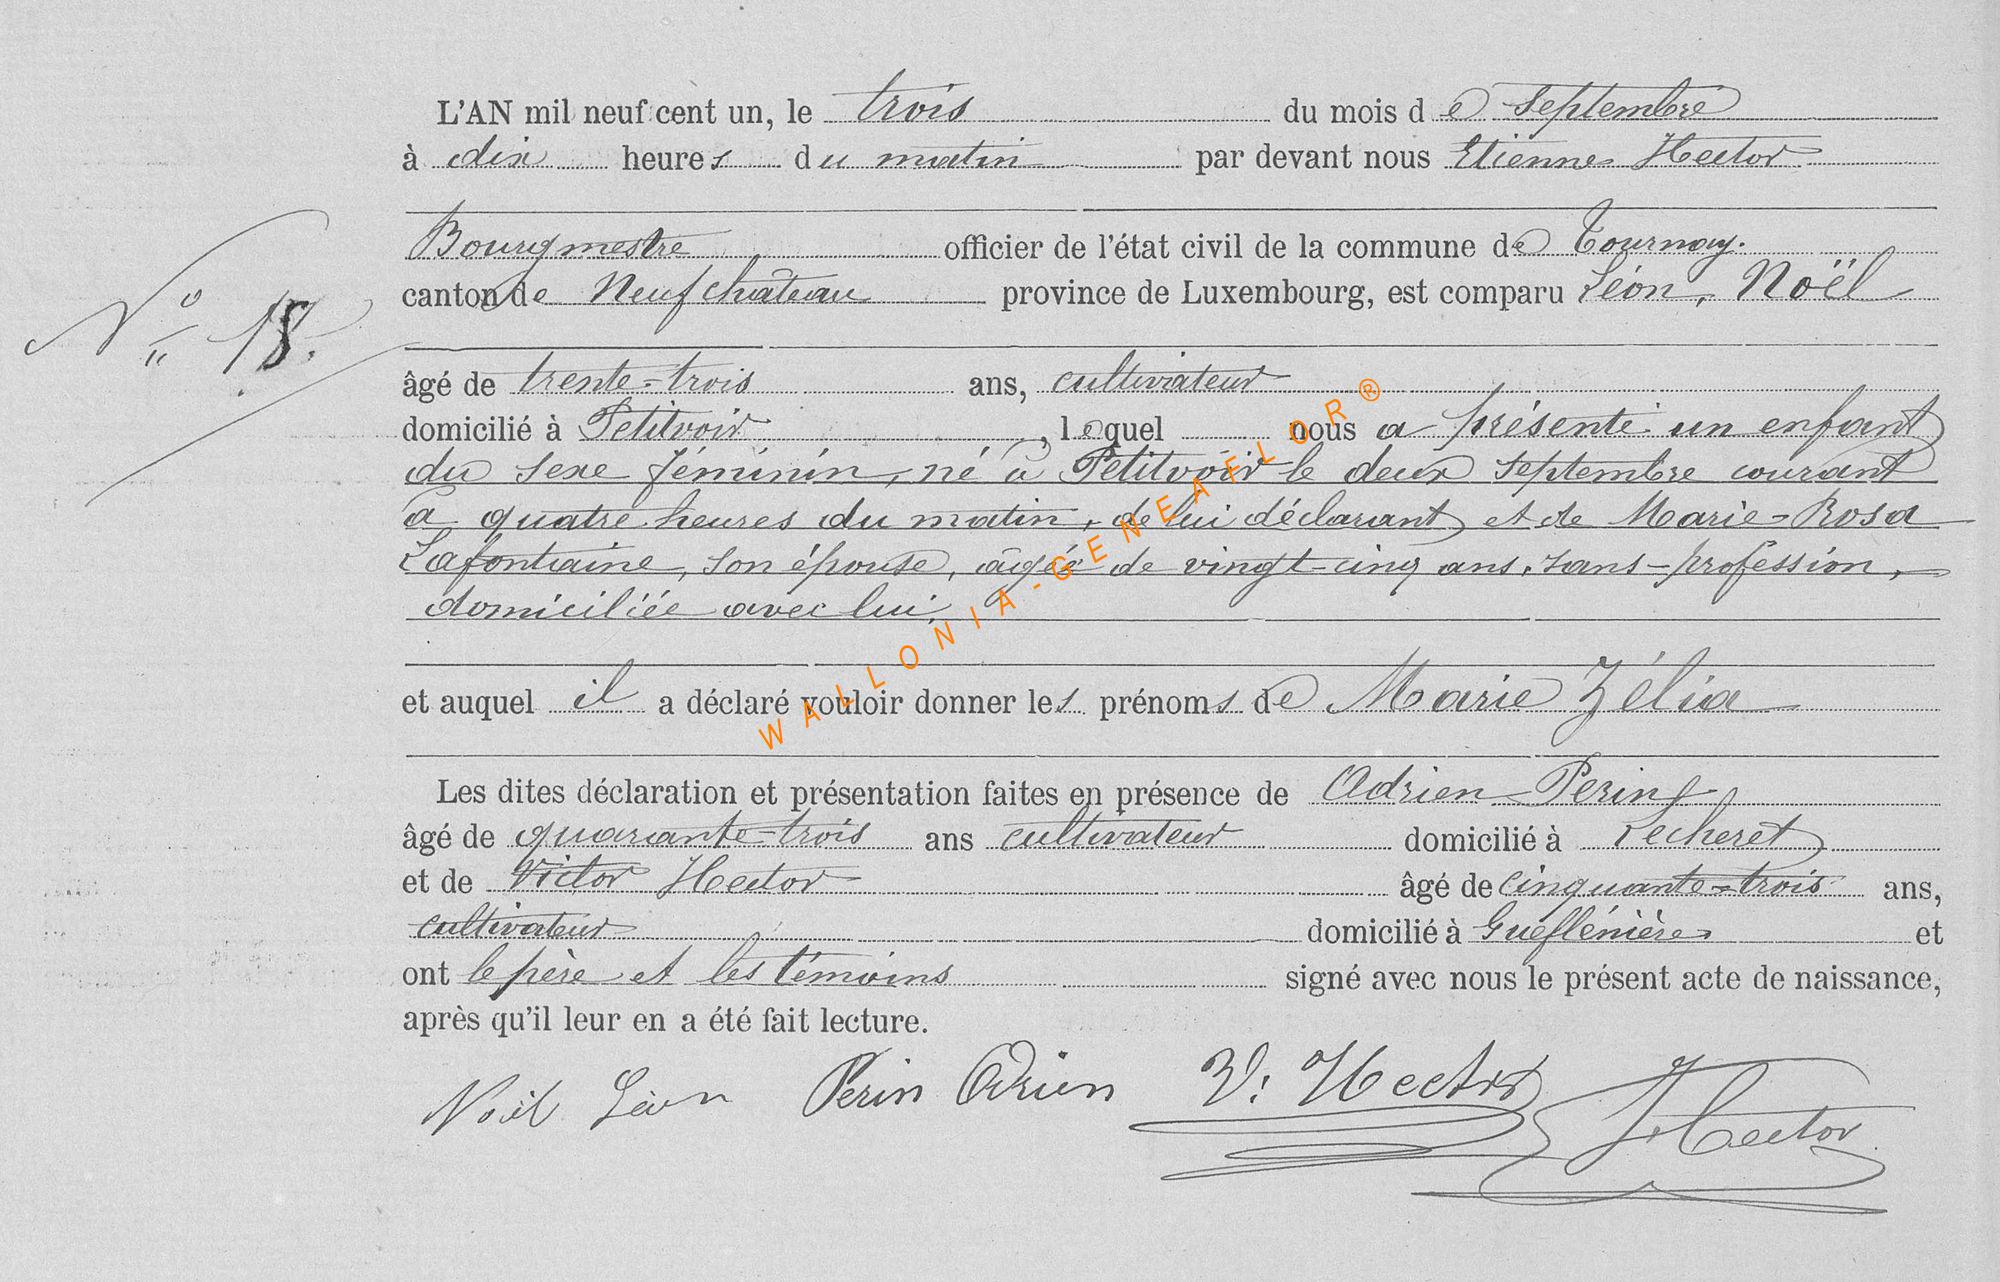 L'AN mil neuf cent un, le trois du mois de Septembre
à dix heures du matin par devant nous Etienne Hector
Bourgmestre officier de l'état civil de la commune de Tournay.
canton de Neufchâteau province de Luxembourg, est comparu Léon, Noël
N° 18.
âgé de trente-trois ans, cultivateur
domicilié à Petitvoir, lequel nous a présenté un enfant
du sexe féminin, né à Petitvoir le deux septembre courant
à quatre heures du matin, de lui déclarant et de Marie-Rosa
Lafontaine, son épouse, âgée de vingt-cinq ans, sans-profession,
domiciliée avec lui,
et auquel il a déclaré vouloir donner les prénoms de Marie Zélia
Les dites déclaration et présentation faites en présence de Adrien Perin
âgé de quarante-trois ans cultivateur domicilié à Lecheret
et de Victor Hector âgé de cinquante-trois ans,
cultivateur domicilié à et
ont le père et les témoins signé avec nous le présent acte de naissance,
après qu'il leur en a été fait lecture.
Noël Léon Perin Adrien V. Hector Hector
WALLONIA-GENEAFLOR®